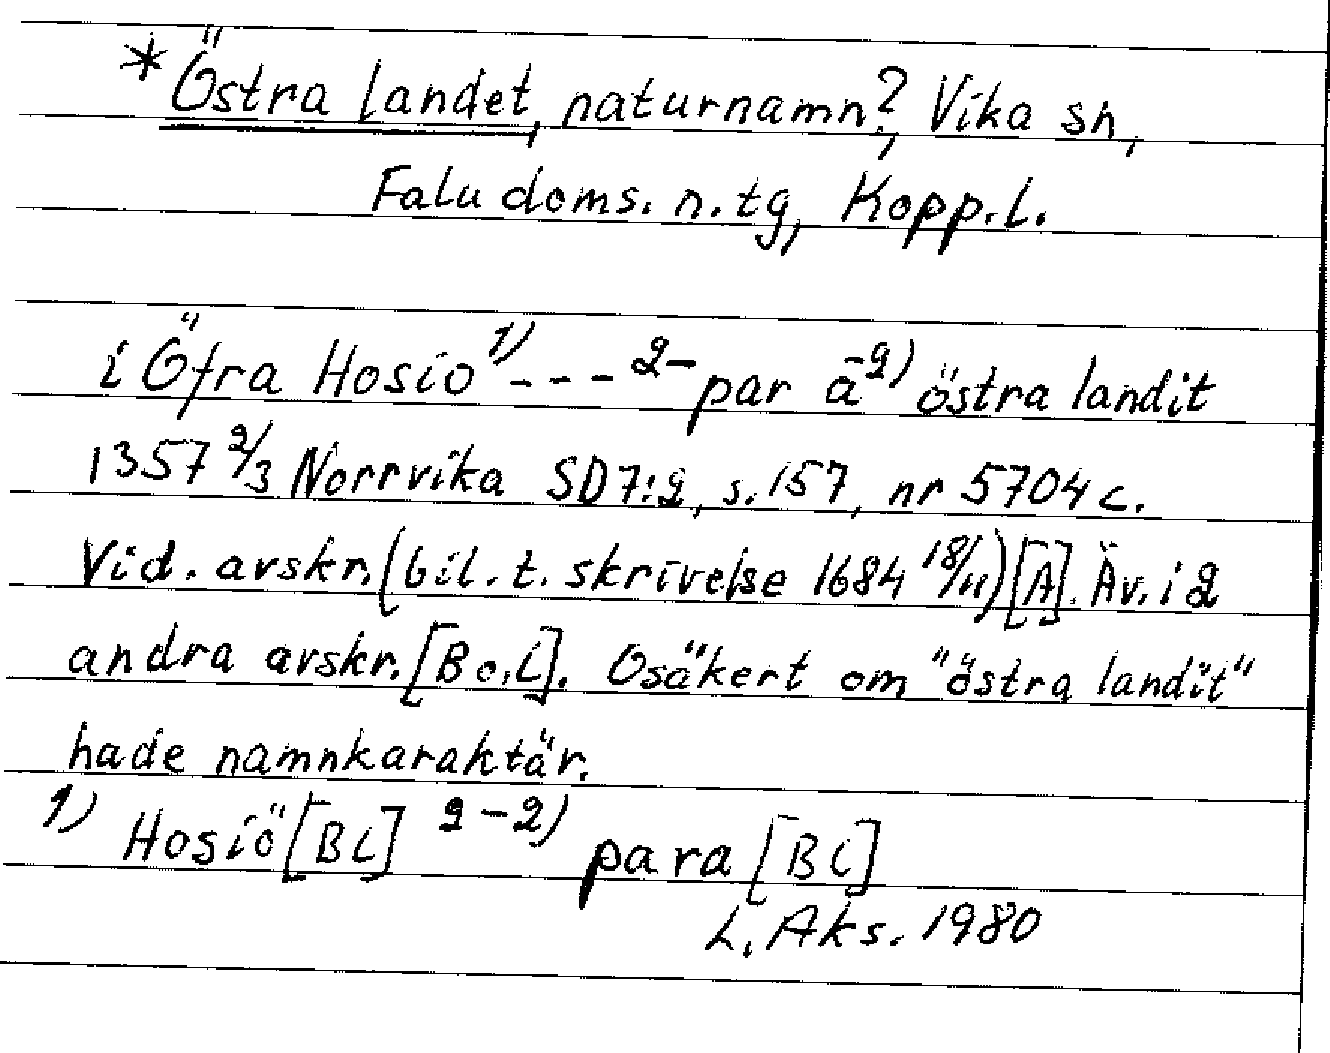 *Östra landet, naturnamn?, Vika sn,
Falu doms. n. tg, Kopp. l.
i Öfra Hosio 1) --- 2- par a -2) östra landit
1357 2/3 Norrvika SD 7:2, s. 157, nr 5704 c.
Vid. avskr. (bil. t. skrivelse 1684 18/11) [A]. Äv. i 2
andra avskr. [B o. C]. Osäkert om "östra landit"
hade namnkaraktär.
1) Hosiö [BC] 2-2) para [BC]
L. Aks. 1980